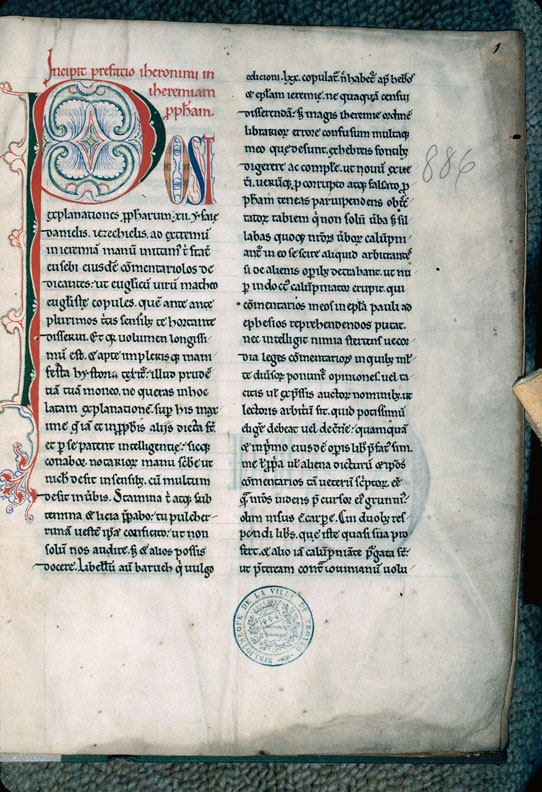 Incipit prefatio iheronimi in
iheremiam
ꝓpham.
POST
explanationes ꝓpharum .xii. ysaie
danielis. iezechielis. ad extremū
in ieremiā manū mittim᷒. t̄ frat̄
eusebi eiusdē cōmentariolos de
dicantes. ut euglicū uirū matheo
euglistę copules. quē ante
plurimos hortante
disserui. Et qͥ uolumen longissi
mū est. & apte implexis quam
festa hystoria illud prudē
tiā tuā moneo. ne queras in hoc
latam explanationē. sup his max
ime q̄ ia & in ꝓphis aliis dicta st̄
et ꝑ se patent intelligentię. sicq;
conabor notarior manu scribe ut
nich desit in sensib; cū multum
desit in ūbis. Stamina t̄ atq; sub
temina & licia p̄pabo. tu pulcher
rimā uestē ipse conficito. ut non
solū nos audire. s; & alios possis
docere. Libellū aū baruch qͥ uulgo
edicioni .lxx. copulat̄. n̄ habet̄ ap̄ hebͦs
& ep̄lam ieremię. ne quaquā censui
disserendā. s; magis iheremie ordinē
librarior errore confusum multaq;
quę desunt. ex hebreis fontib;
digerere ac comple. ut nouū ex ue
ti. uerūq; ꝑ corrupto atq; falsato. ꝓ
pham teneas paruipendens obt̄c
tator rabiem qͥ non solū ūba s; sil
labas quoq; nr̄or ūbor calūpni
ant̄ in eo se scire aliquid arbitrantes
si de alienis opib; detrabant. ut nup
ꝑ indoctꝰ calūpniator erupit. qui
cōmentarios meos in epl̄a pauli ad
ephesios reprehendendos putat.
nec intelligit nimia stertens uecor
dia leges cōmentarior in quib; ml̄
te diūsor ponunt̄ opiniones uel ta
citis ul exp̄ssis auctor nominib;. ut
lectoris arbitriū sit. quid potissimū
elige debeat uel decn̄e. quamquā
& in p̄mo eiusdē opis lib̄ p̄fat̄ sim.
me ł ꝓp̄a ul aliena dicturū & ip̄os
cōmentarios tā ueterū sc̄ptor. eē
qͣ nr̄os uidens p̄cursor eī grunniꝰ
olim nisus ē carpe. Cui duob; res
pondi libs. que iste quasi sua pro
fert. & alio iā calūpniāte ꝓgata st̄.
ut p̄teream cont̄ iouinianū uolu
1
886
BIBLIOTHÈQUE DE LA VILLE DE TROYES